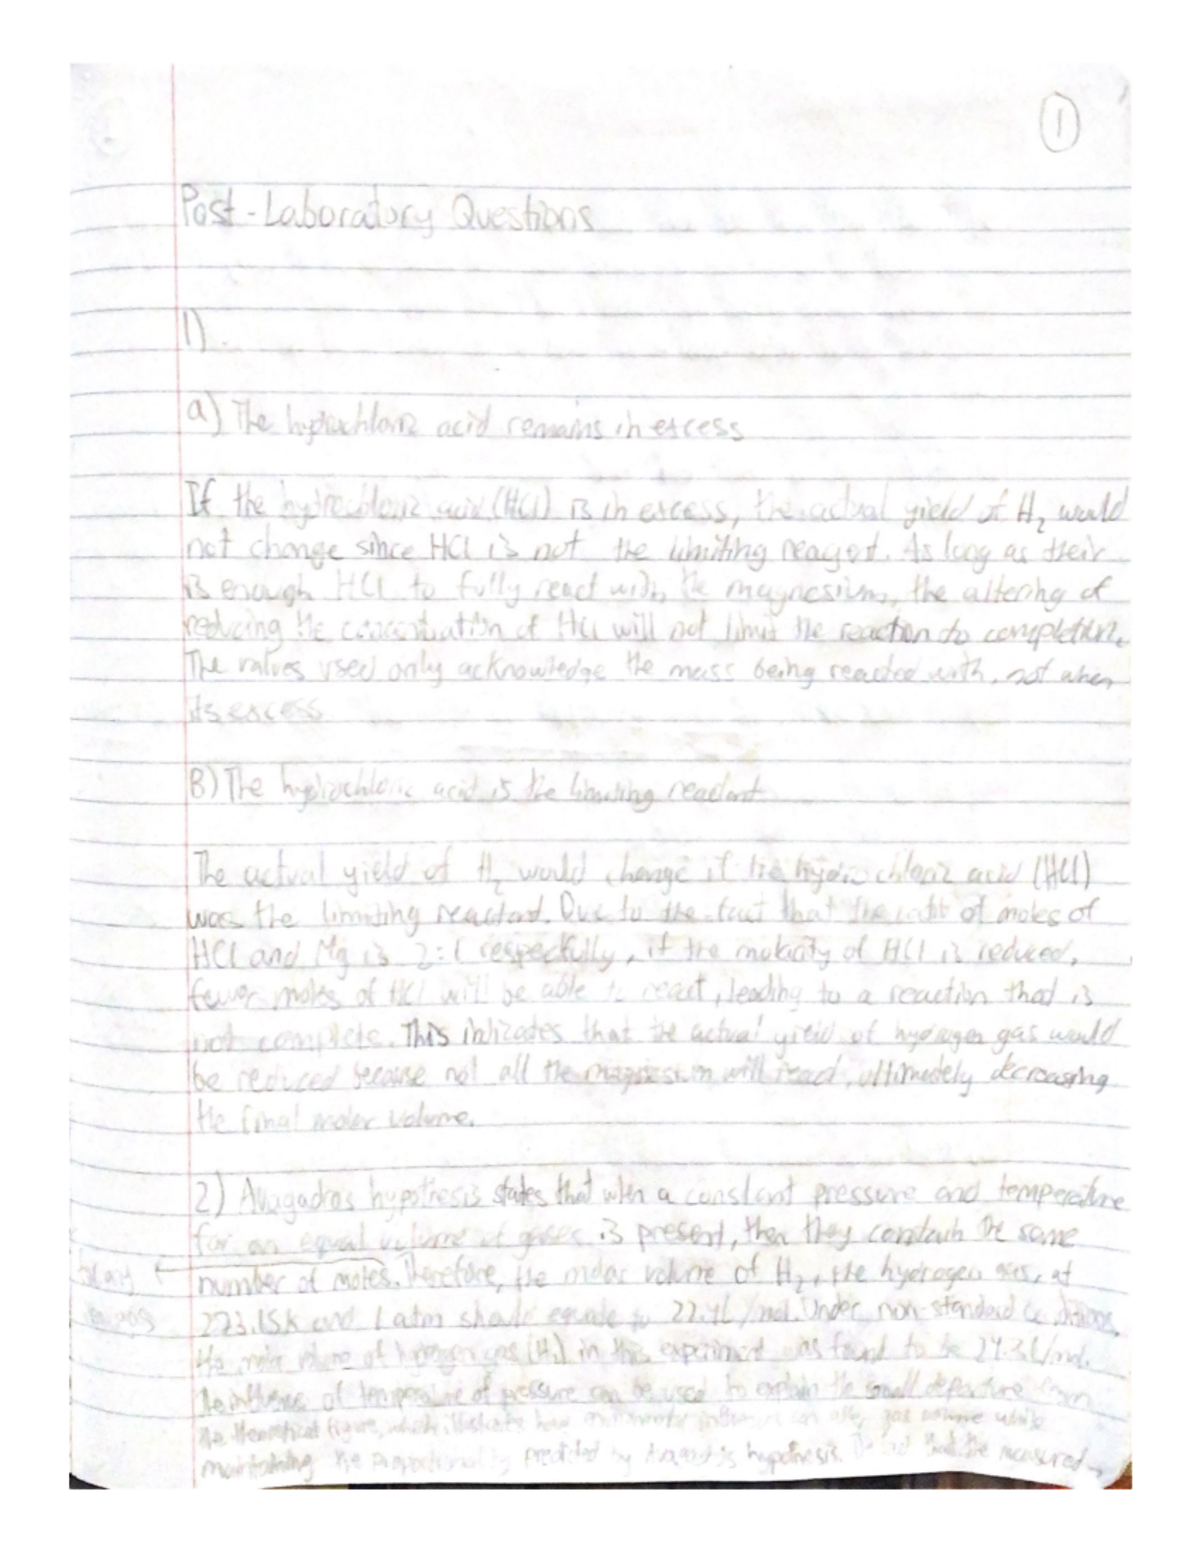 1
Post-Laboratory Questions
1)
a) The hydrochloric acid remains in excess
If the hydrochloric acid (HCl) is in excess, the actual yield of H₂ would
not change since HCl is not the limiting reagent. As long as their
is enough HCl to fully react with the magnesium, the altering of
reducing the concentration of HCl will not limit the reaction to completion.
The values used only acknowledge the mass being reacted with, not when
its excess
B) The hydrochloric acid is the limiting reactant
The actual yield of H₂ would change if the hydrochloric acid (HCl)
was the limiting reactant. Due to the fact that the ratio of moles of
HCl and Mg is 2:1 respectfully, if the molarity of HCl is reduced,
fewer moles of HCl will be able to react, leading to a reaction that is
not complete. This indicates that the actual yield of hydrogen gas would
be reduced because not all the magnesium will react, ultimately decreasing
the final molar volume.
2) Avagadros hypothesis states that when a constant pressure and temperature
for an equal volume of gases is present, then they contain the same
number of moles. Therefore, the molar volume of H₂, the hydrogen gas, at
273.15K and 1 atm should equate to 22.4L/mol. Under non-standard conditions,
the molar volume of hydrogen gas (H₂) in this experiment was found to be 24.3L/mol.
The influence of temperature of pressure can be used to explain the small departure from
the theoretical figure, which illustrates how environmental influences can alter gas volume while
maintaining the proportionality predicted by Avagadro's hypothesis. The fact that the measured →